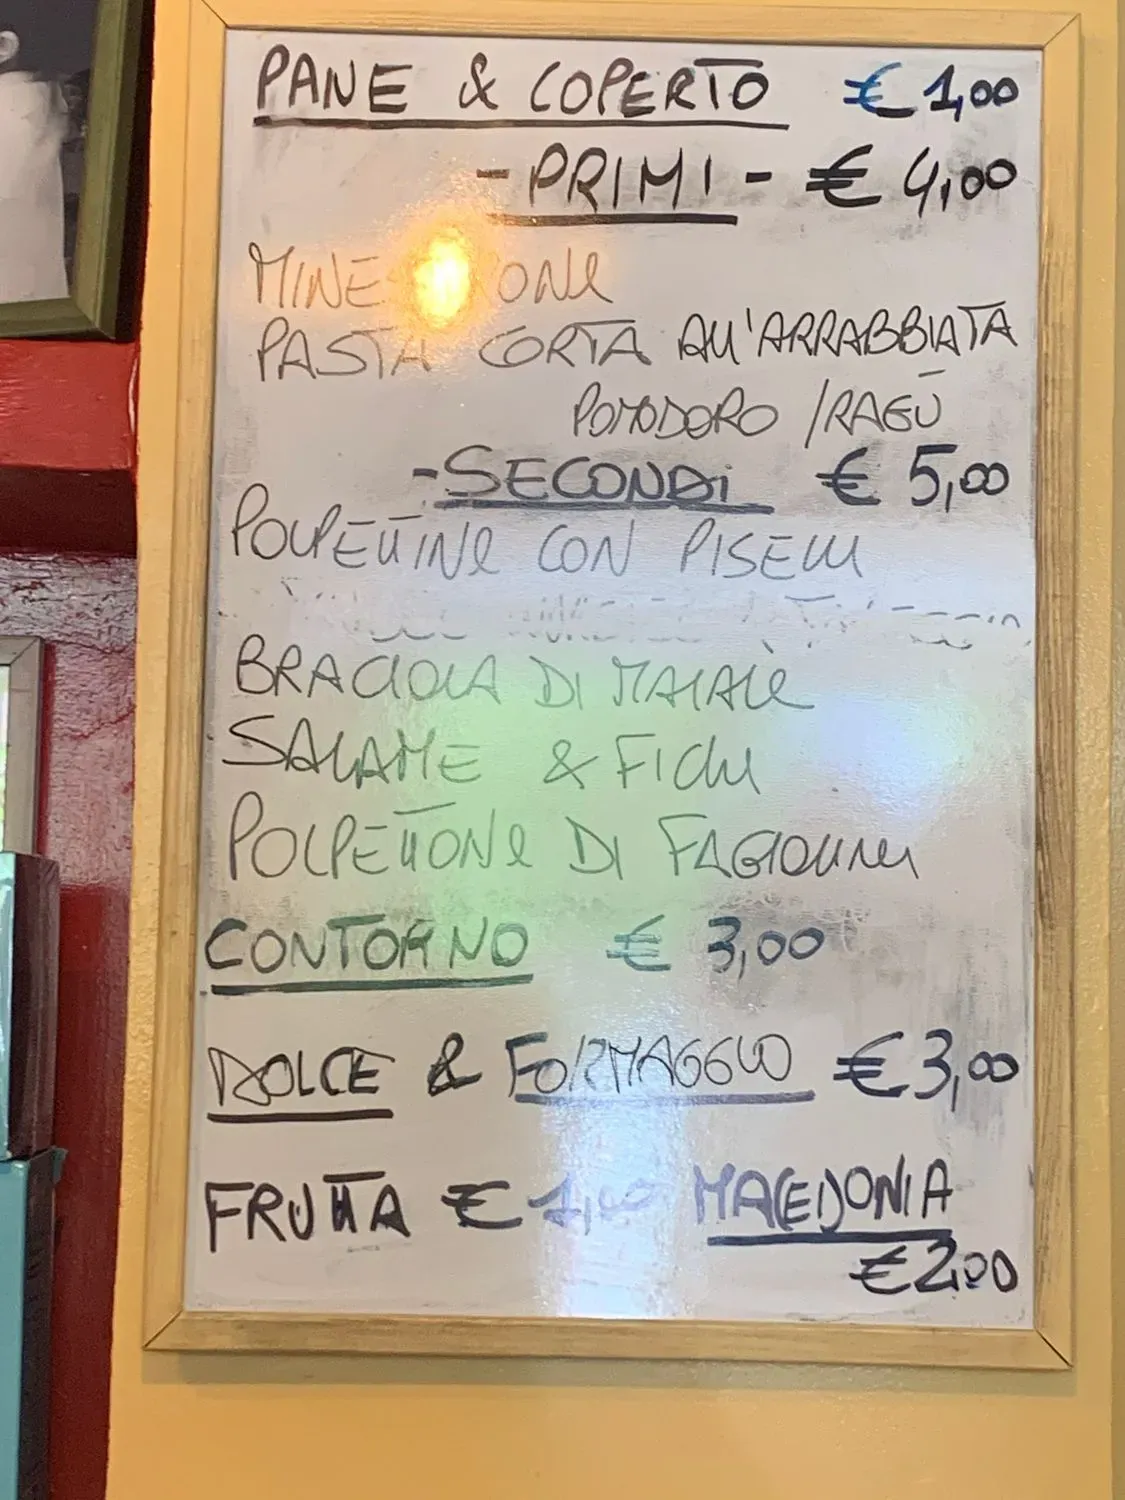 PANE & COPERTO € 1,00
- PRIMI - € 4,00
MINESTRONE
PASTA CORTA ALL'ARRABBIATA
POMODORO / RAGÙ
- SECONDI € 5,00
POLPETTINE CON PISELLI
BRACIOLA DI MAIALE
SALAME & FICHI
POLPETTONE DI FAGIOLINI
CONTORNO € 3,00
DOLCE & FORMAGGIO € 3,00
FRUTTA € 1,00 MACEDONIA
€ 2,00